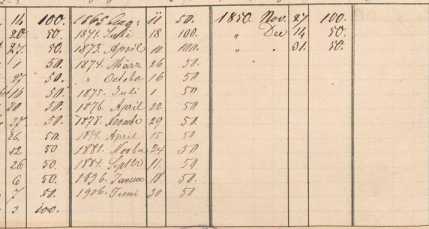 14 100. 1865 Aug: 11 50. 1850. Nov. 27 100.
20 50. 1871. Juli 18 100. " Dec 14 50.
27. 50. 1873. April 10 100. " . 31. 50.
1 50. 1874. März 26 50.
27. 50. " Octobe 16 50
14 50. 1875. Juli 1 50
20 50. 1876. April 22 50.
50. 1878. 29 50.
50. April 15 50.
12 50 1881. 24 50.
26 50. 1884. Septbr 11. 50
6 50. 1896. Januar 18 50.
7 50. 1906. Juni 30 50
3 100.